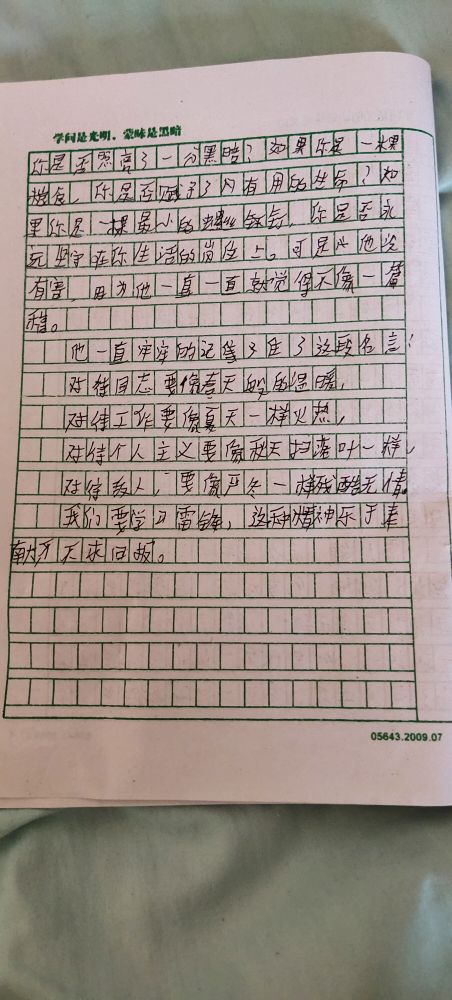 学问是光明，蒙昧是黑暗
你是否照亮了一分黑暗？如果你是一棵
粮食，你是否赋予了内有用的生命？如
果你是一棵最小的螺丝钉，你是否永
远坚守在你生活的岗位上。可是他没
有害，因为他一直一直就觉得不像一篇
程。
他一直牢牢的记住了这段名言：
对待同志要像春天般的温暖，
对待工作要像夏天一样火热，
对待个人主义要像秋天扫落叶一样，
对待敌人，要像严冬一样残酷无情
我们要学习雷锋，这种精神乐于奉
献，不求回报。
05643.2009.07